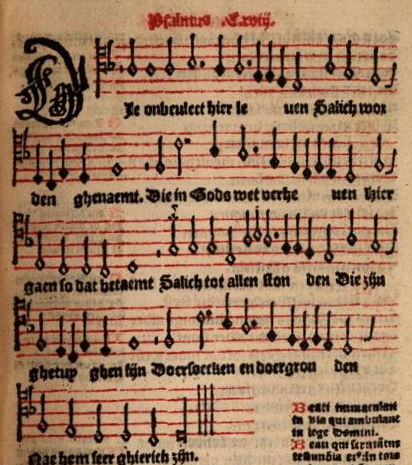 Psalmus Cxviij.
DIe onbeulect hier le uen Salich wor
den ghenaemt. Die in Gods wet verhe uen hier
gaen so dat betaemt Salich tot allen ston den Die zijn
ghetup ghen sijn Doersoecken en doergron den
Nae hem seer ghierich zijn.
Beati immaculati
in via qui ambulant
in lege Domini.
Beati qui scrutātes